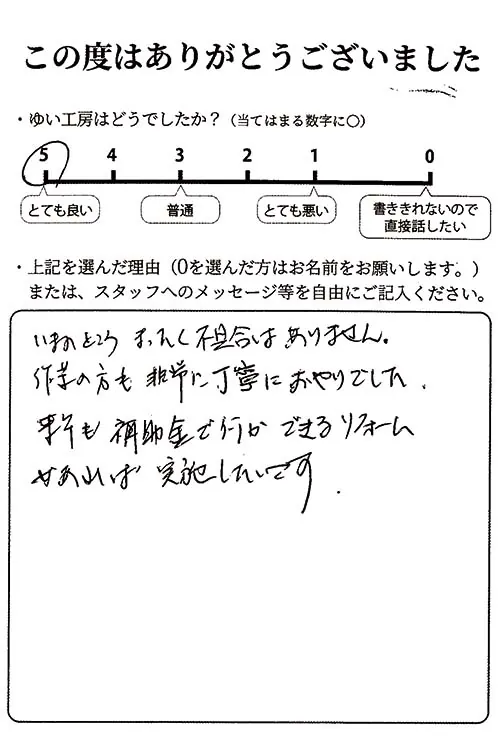 この度はありがとうございました
・ゆい工房はどうでしたか？（当てはまる数字に〇）
5 4 3 2 1 0
とても良い 普通 とても悪い 書ききれないので
直接話したい
・上記を選んだ理由（0を選んだ方はお名前をお願いします。）
または、スタッフへのメッセージ等を自由にご記入ください。
いまのところ まったく不具合はありません。
作業の方も 非常に丁寧におやりでした。
来年も 補助金で行な できるリフォーム
があれば 実施したいです。